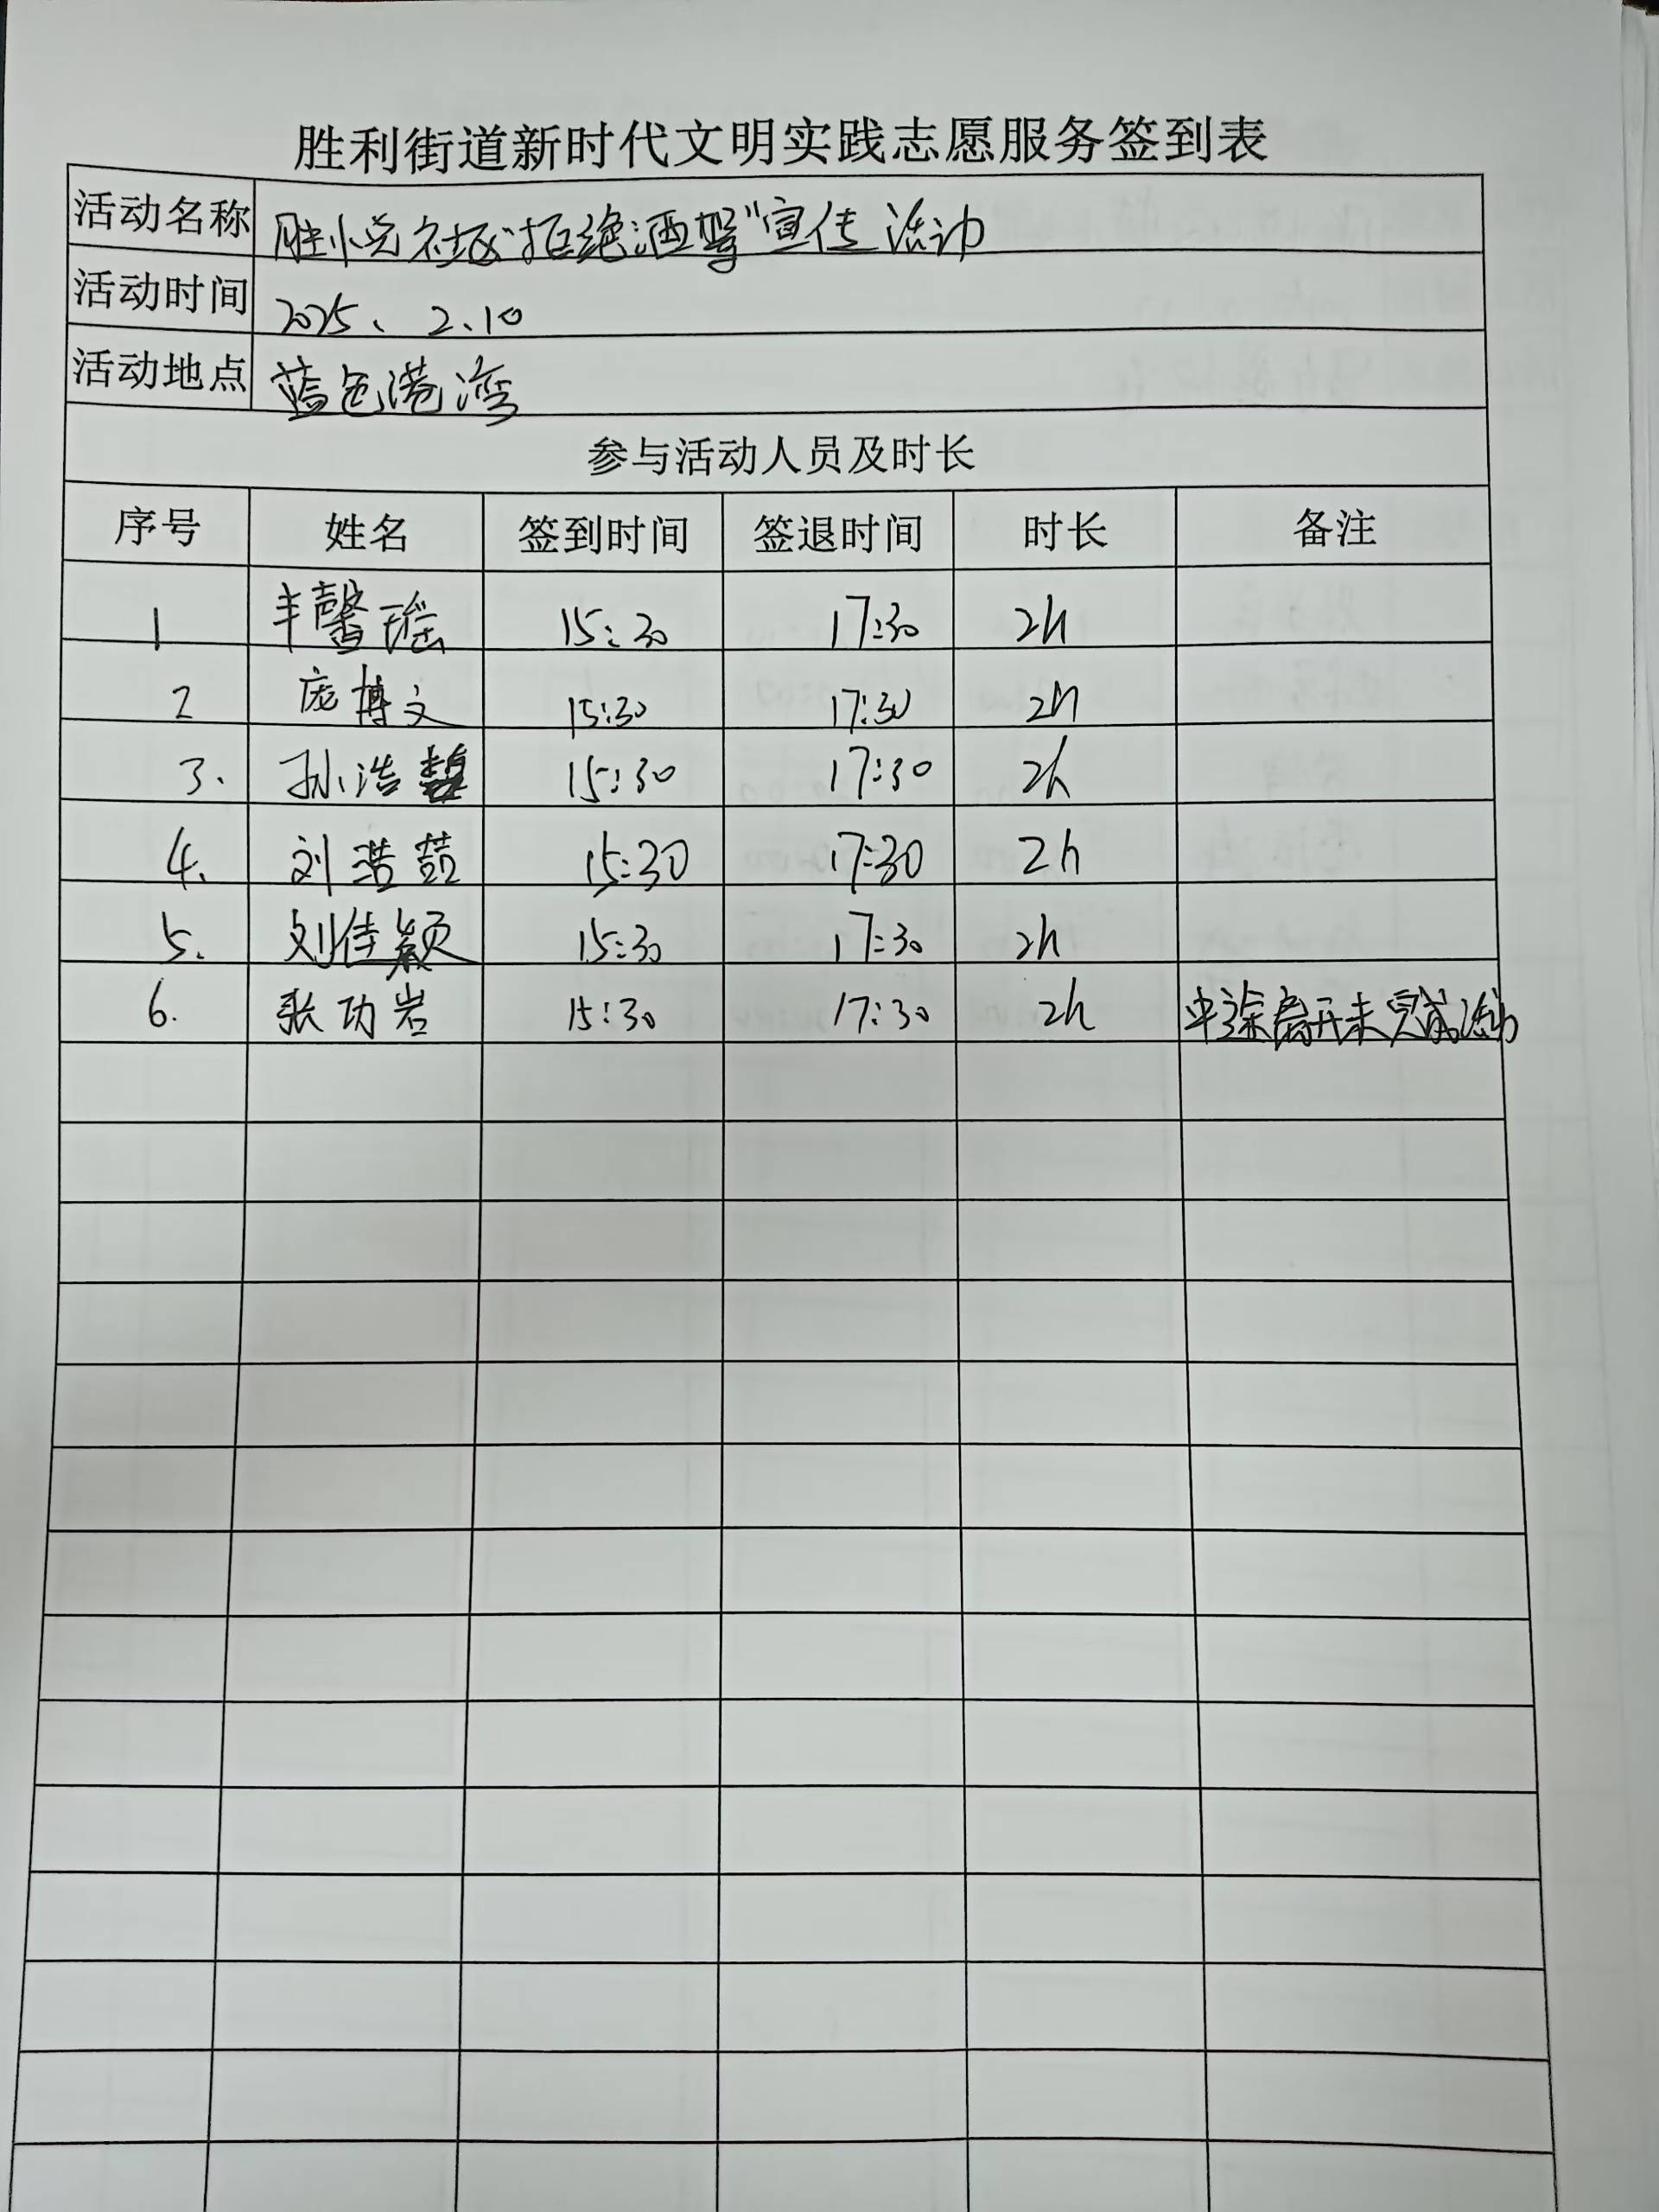 胜利街道新时代文明实践志愿服务签到表
活动名称 胜小党社区"拒绝酒驾"宣传活动
活动时间 2025、2.10
活动地点 蓝色港湾
参与活动人员及时长
序号 姓名 签到时间 签退时间 时长 备注
1 丰馨瑶 15:30 17:30 2h
2 庞博文 15:30 17:30 2h
3. 孙浩 15:30 17:30 2h
4. 刘浩喆 15:30 17:30 2h
5. 刘佳颖 15:30 17:30 2h
6. 张功岩 15:30 17:30 2h 中途离开未完成活动